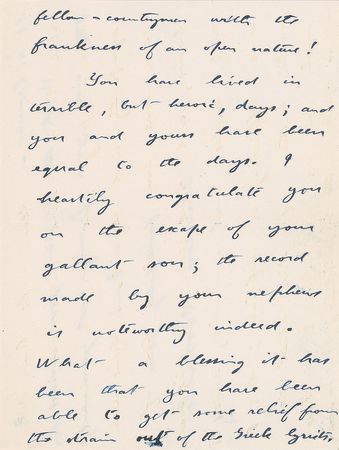 fellow-countrymen with the
frankness of an open nature!
You have lived in
terrible, but heroic, days; and
you and yours have been
equal to the days. I
heartily congratulate you
on the escape of your
gallant son; the record
made by your nephews
is noteworthy indeed.
What a blessing it has
been that you have been
able to get some relief from
the strain out of the Greek